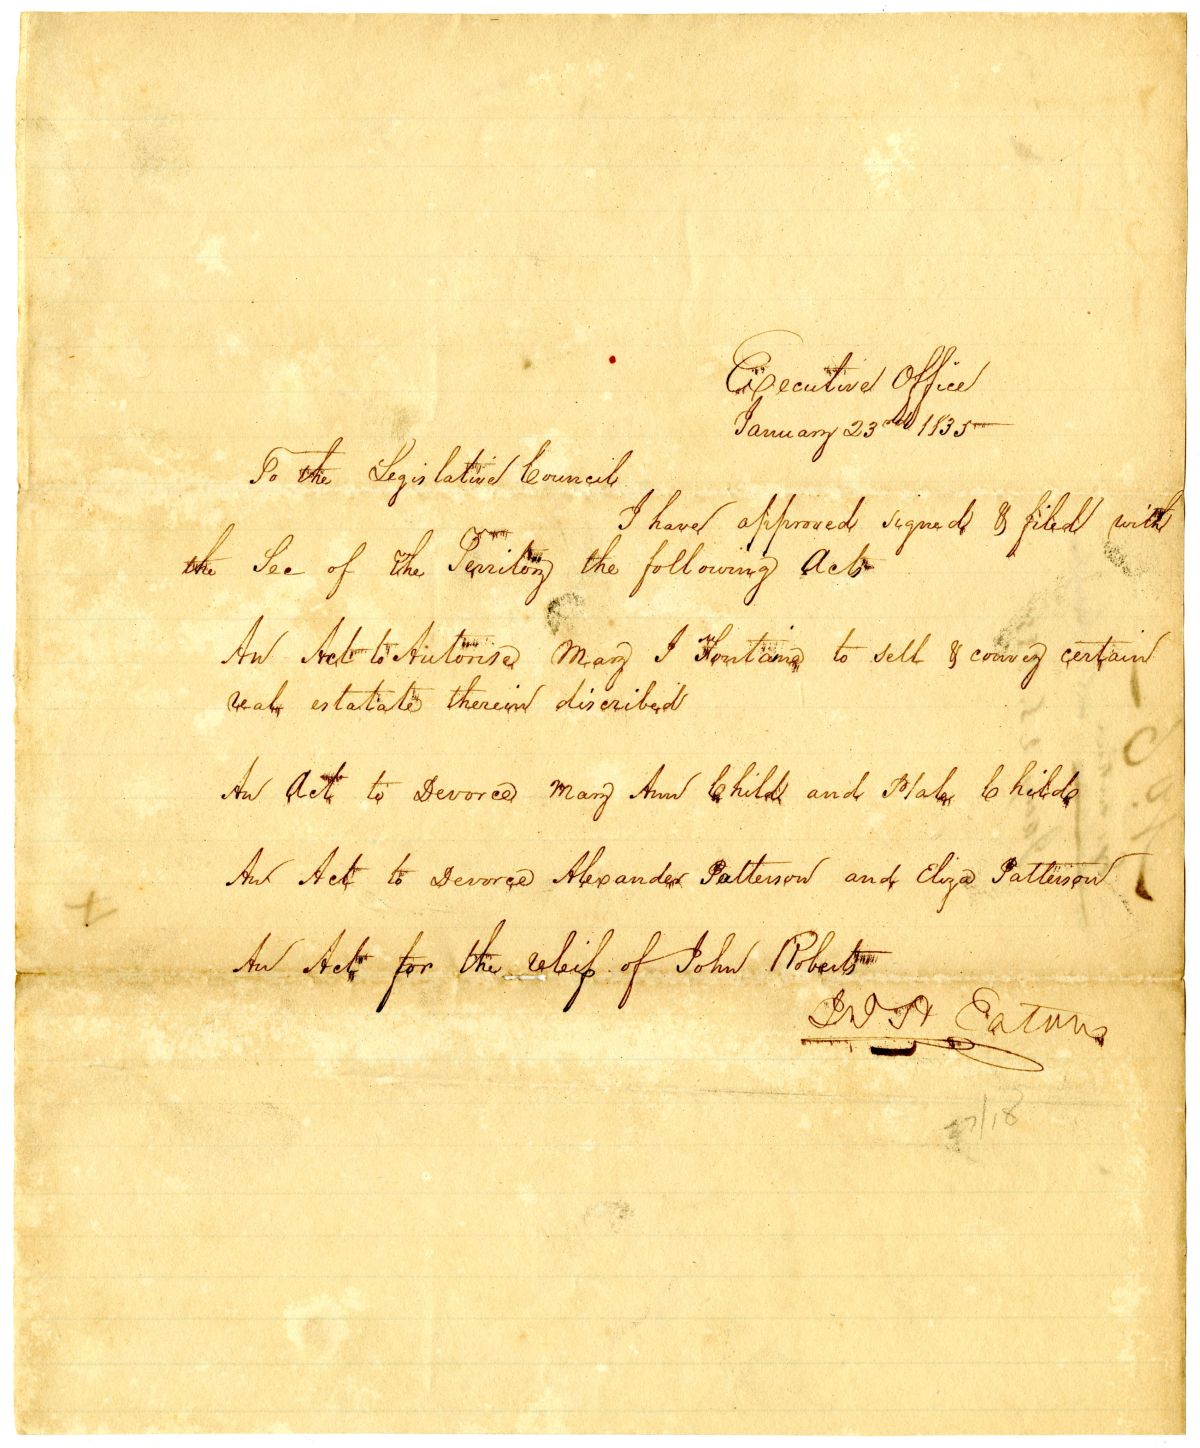 Executive Office
January 23rd 1835
To the Legislative Council
I have approved signed & filed with
the Sec of the Territory the following Acts
An Act to Autorise Mary I Fontaine to sell & convey certain
real estatate therein discribed
An Act to Devorce Mary Ann Child and Child
An Act to Devorce Alexander Patterson and Eliza Patterson
An Act for the releif of John Roberts
Jno H Eaton
27/18